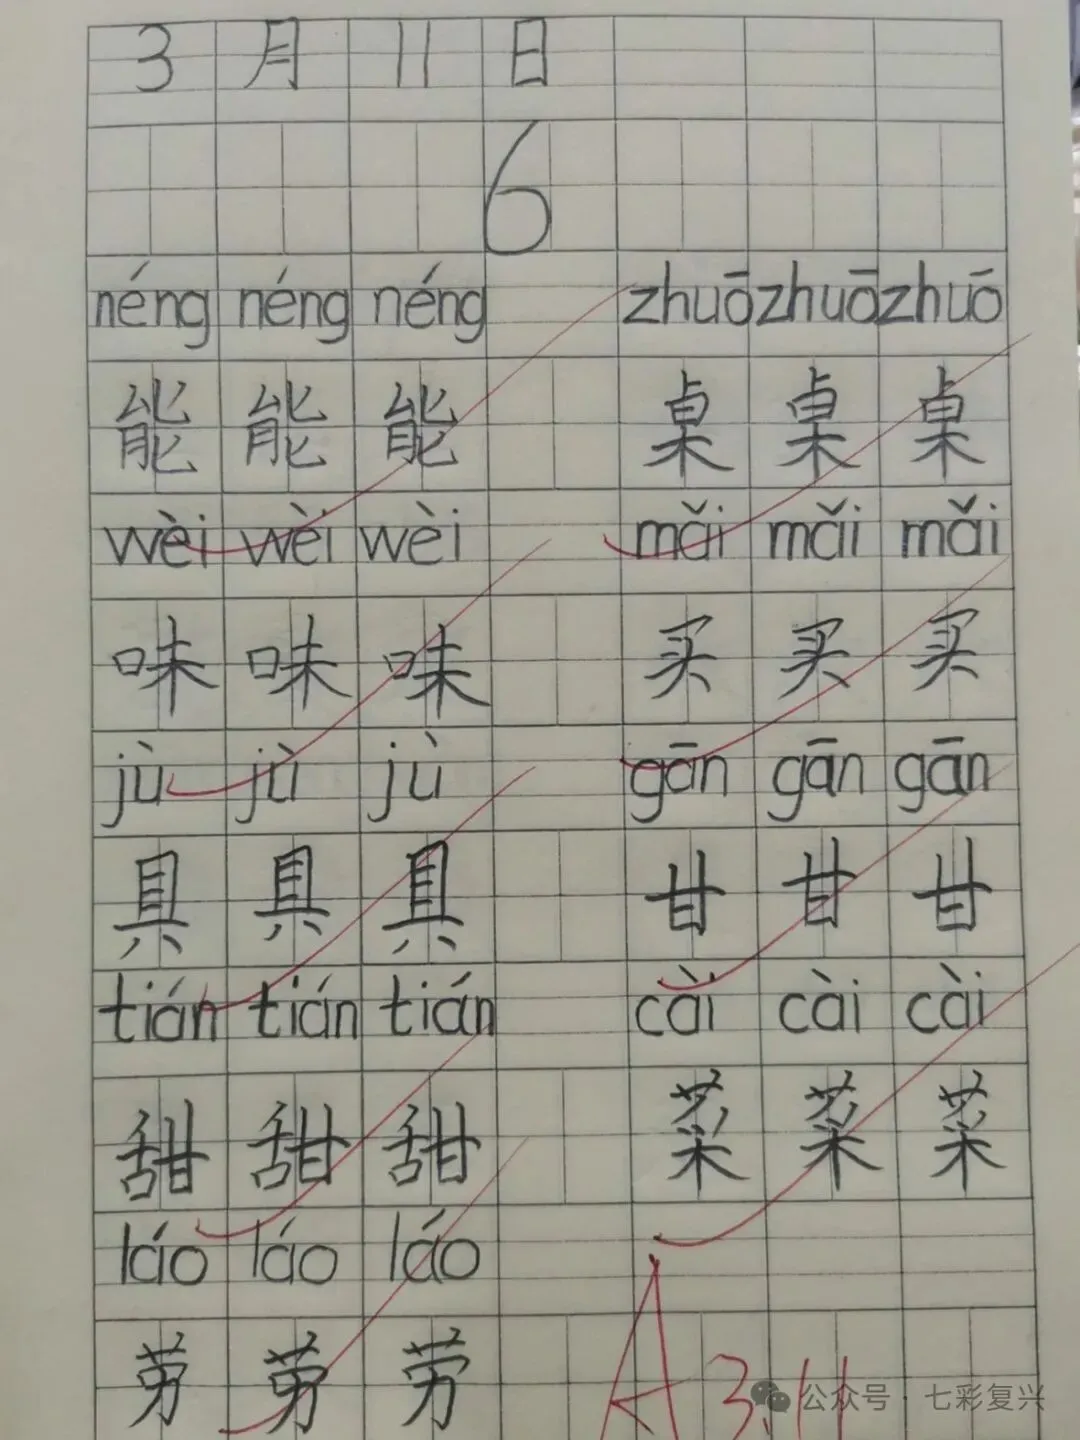 3月11日
6
néng néng néng zhuō zhuō zhuō
能 能 能 桌 桌 桌
wèi wèi wèi mǎi mǎi mǎi
味 味 味 买 买 买
jù jù jù gān gān gān
具 具 具 甘 甘 甘
tián tián tián cài cài cài
甜 甜 甜 菜 菜 菜
láo láo láo
劳 劳 劳
A 3.11
公众号·七彩复兴